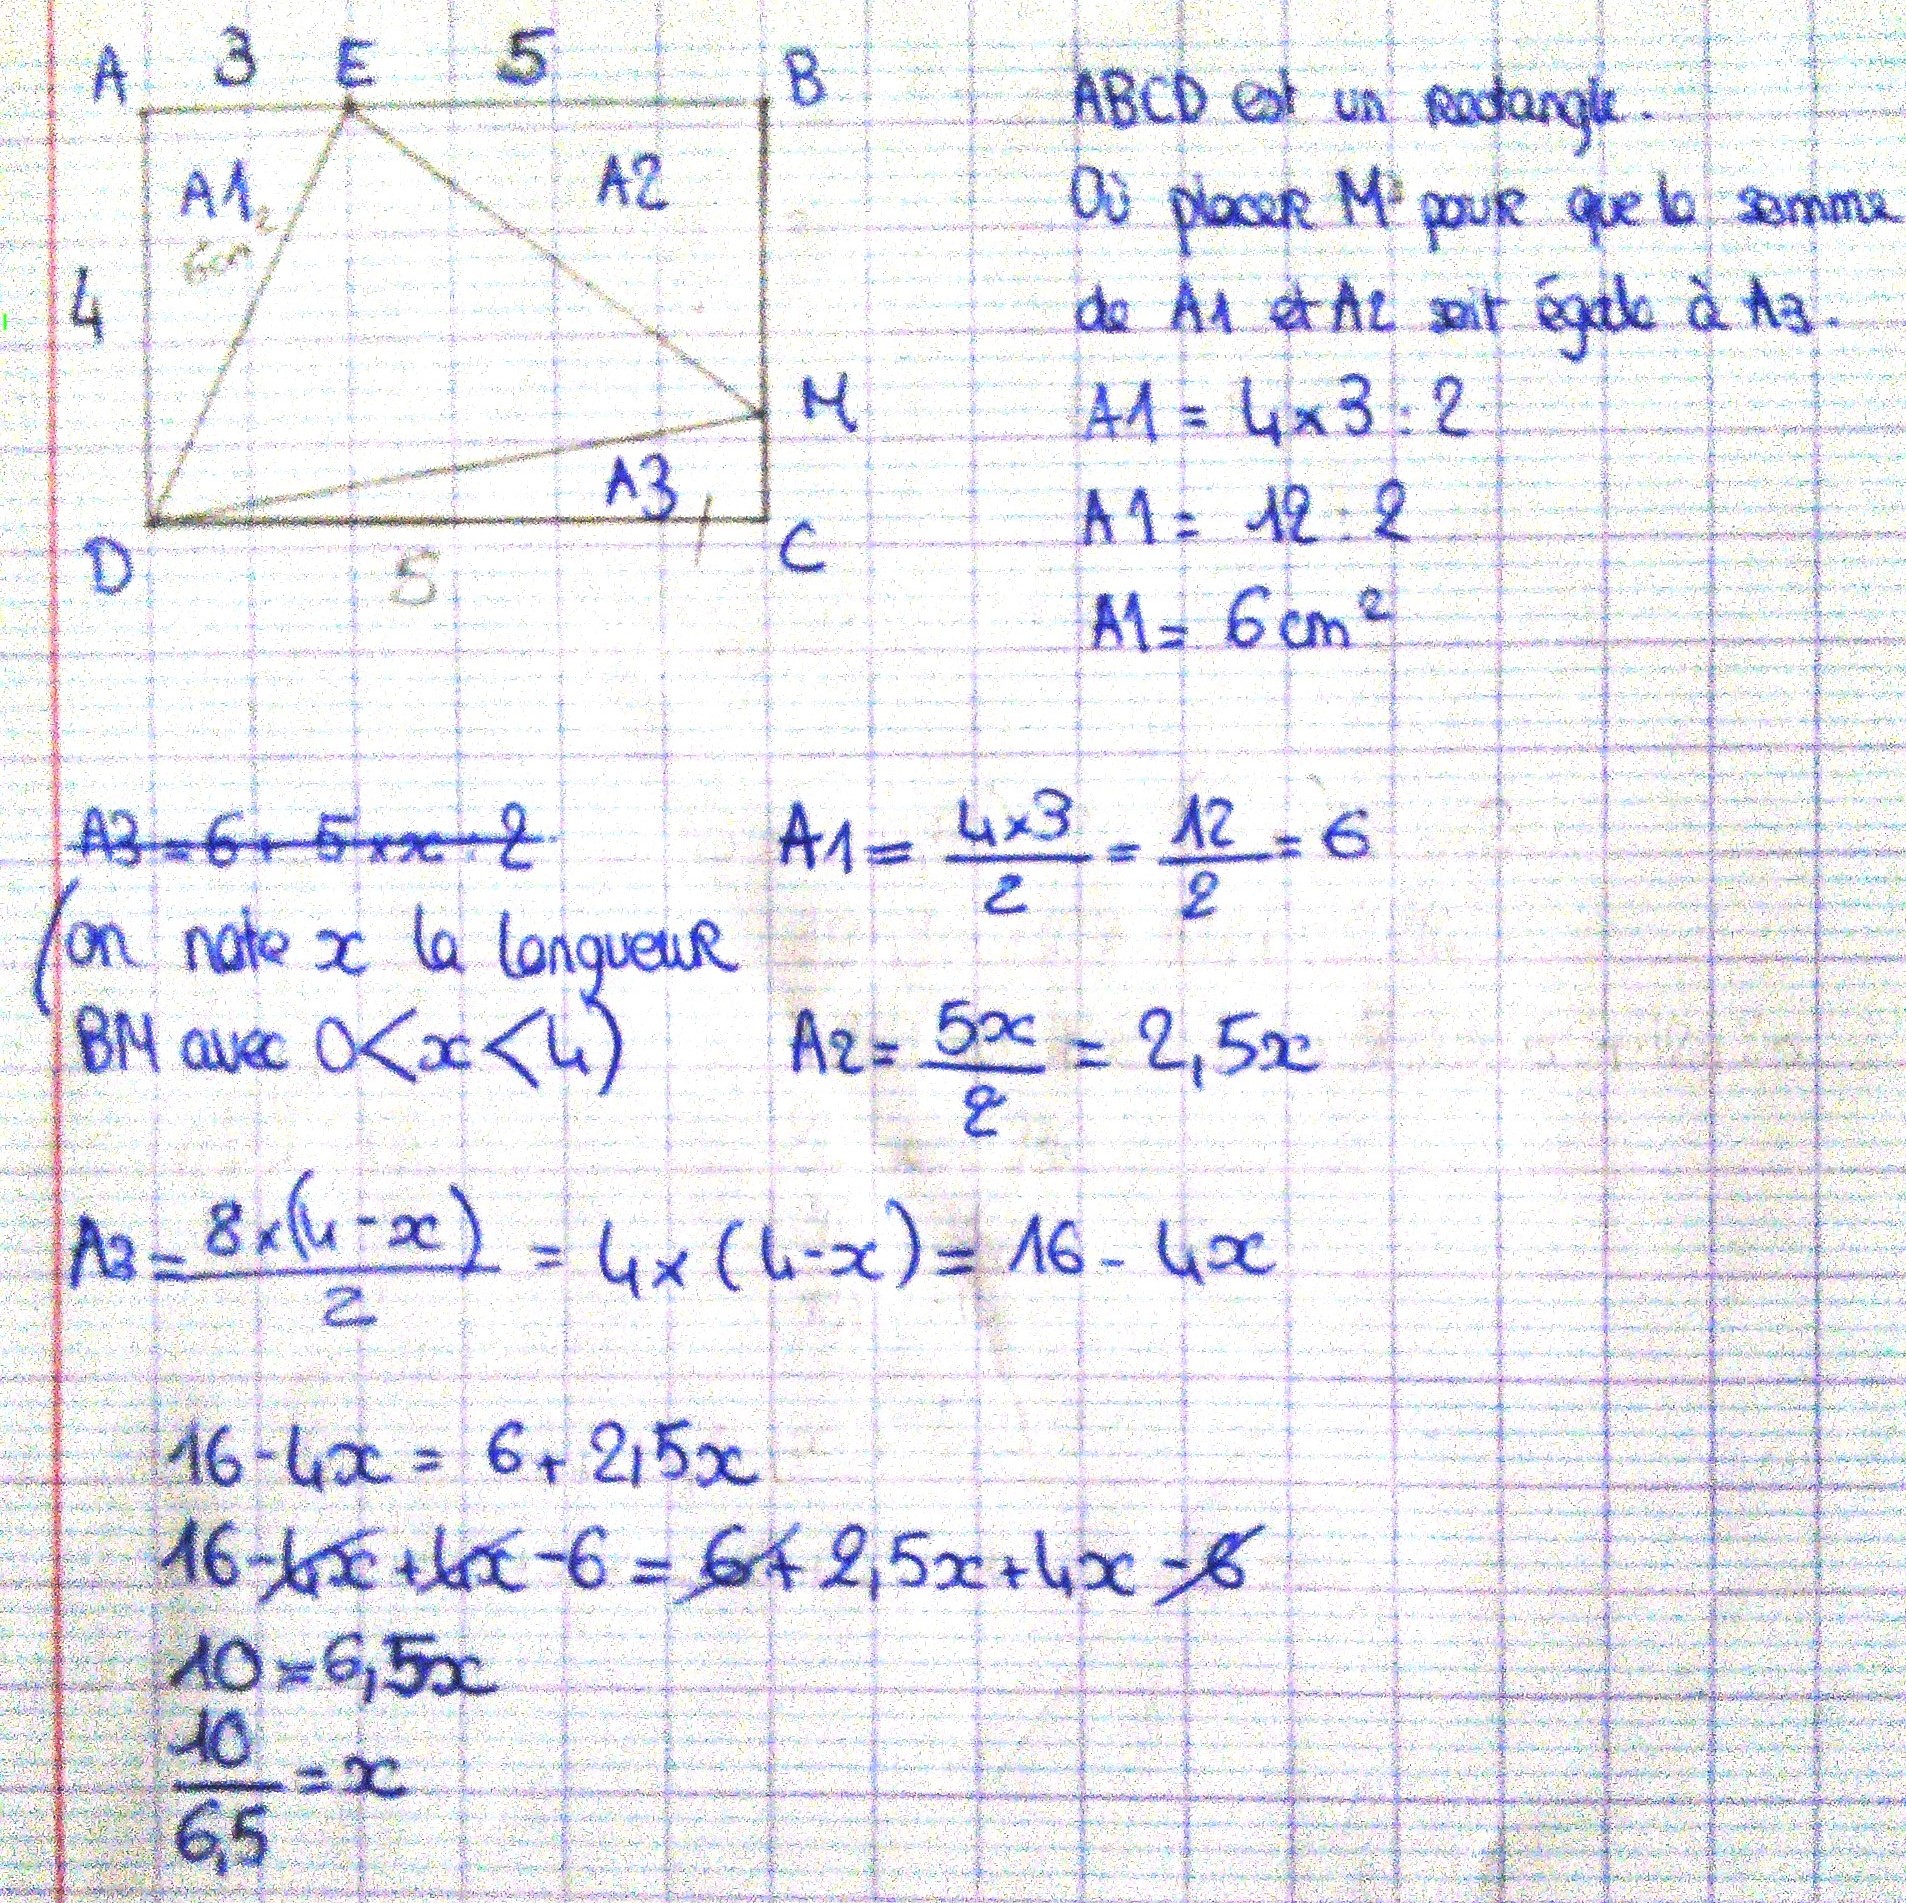 A 3 E 5 B
A1
6cm²
A2
4
M
A3
D
5
C
ABCD est un rectangle.
Où placer M pour que la somme
de A1 et A2 soit égale à A3.
A1 = 4 × 3 : 2
A1 = 12 : 2
A1 = 6 cm²
A3 = 6 + 5 × x : 2
(on note x la longueur
BM avec 0 < x < 4)
A1 = 4×3/2 = 12/2 = 6
A2 = 5x/2 = 2,5x
A3 = 8×(4-x)/2 = 4×(4-x) = 16 - 4x
16 - 4x = 6 + 2,5x
16 - 4x + 4x - 6 = 6 + 2,5x + 4x - 6
10 = 6,5x
10/6,5 = x